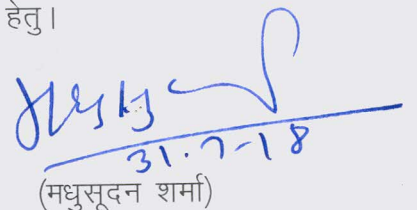 हेतु।
31.7-18
(मधुसूदन शर्मा)